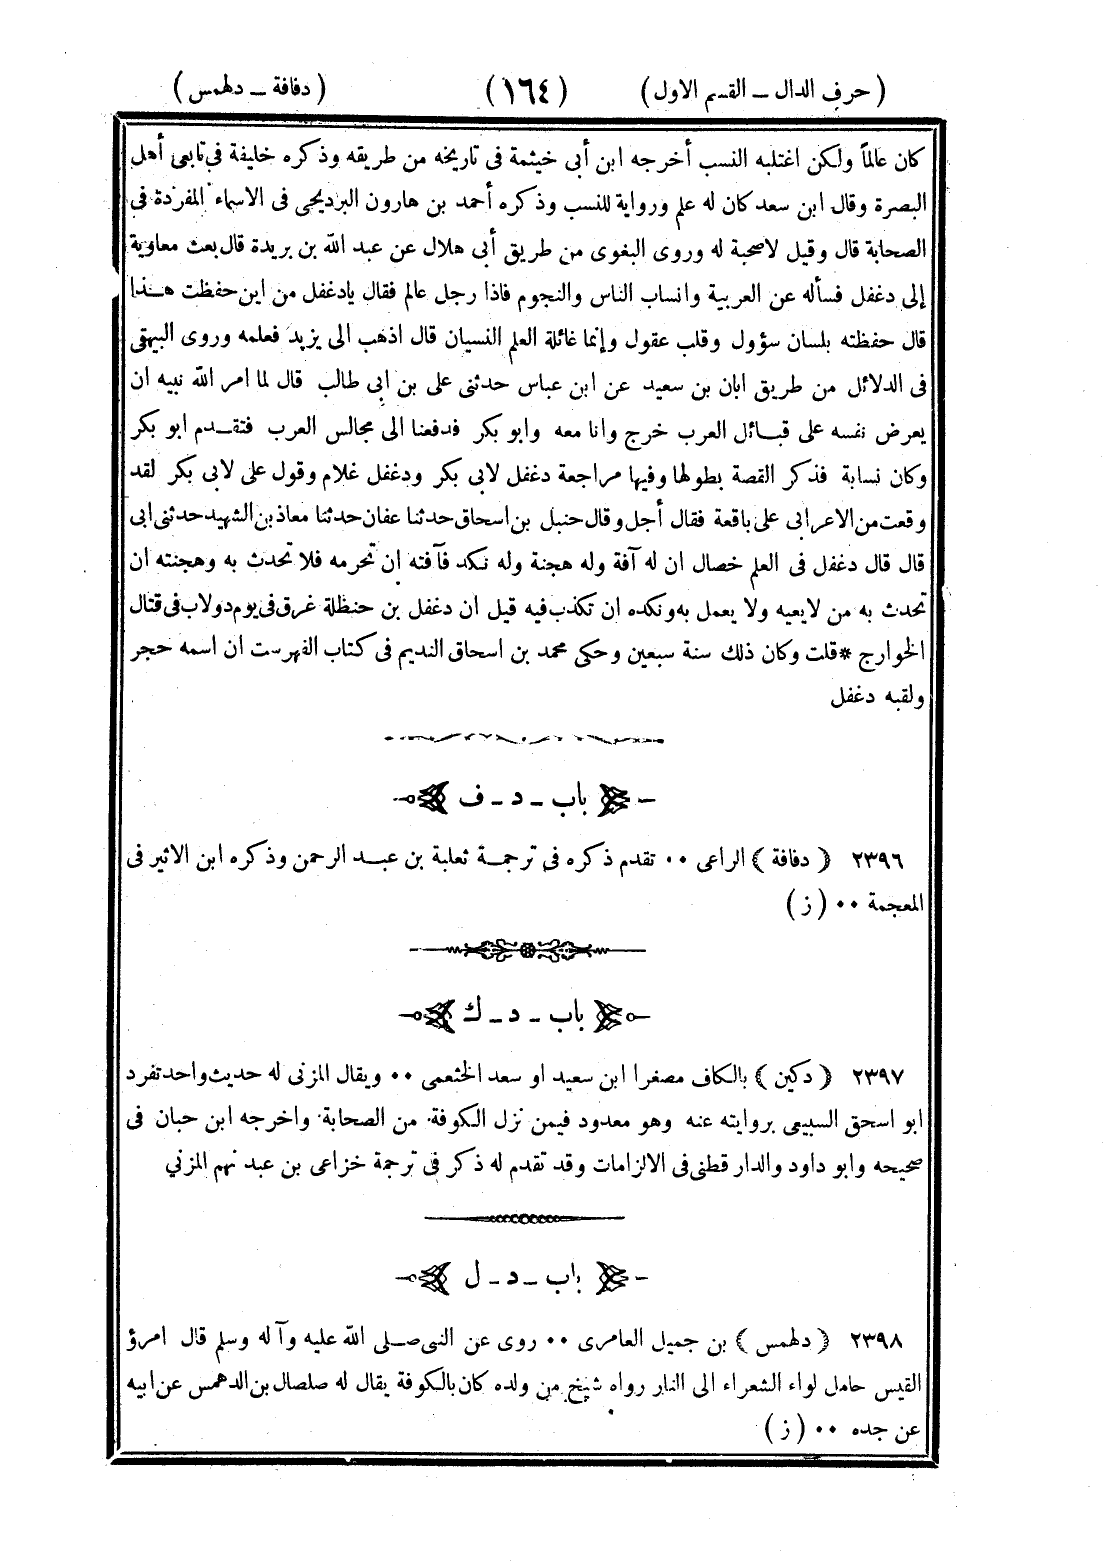 ( حرف الدال ــ القسم الاول )
( ١٦٤ )
( دفافة ــ دلهمس )
كان عالماً ولكن اغتلبه النسب أخرجه ابن أبى خيثمة فى تاريخه من طريقه وذكره خليفة فى تابعى أهل
البصرة وقال ابن سعد كان له علم ورواية للنسب وذكره أحمد بن هارون البرديجى فى الاسماء المفردة فى
الصحابة قال وقيل لاصحبة له وروى البغوى من طريق أبى هلال عن عبد الله بن بريدة قال بعث معاوية
إلى دغفل فسأله عن العربية وانساب الناس والنجوم فاذا رجل عالم فقال يادغفل من اين حفظت هــذا
قال حفظته بلسان سؤول وقلب عقول وإنما غائلة العلم النسيان قال اذهب الى يزيد فعلمه وروى البيهقى
فى الدلائل من طريق ابان بن سعيد عن ابن عباس حدثنى على بن ابى طالب قال لما امر الله نبيه ان
يعرض نفسه على قبــائل العرب خرج وانا معه وابو بكر فدفعنا الى مجالس العرب فتقــدم ابو بكر
وكان نسابة فذكر القصة بطولها وفيها مراجعة دغفل لابى بكر ودغفل غلام وقول على لابى بكر لقد
وقعت من الاعرابى على باقعة فقال أجل وقال حنبل بن اسحاق حدثنا عفان حدثنا معاذ بن الشهيد حدثنى ابى
قال قال دغفل فى العلم خصال ان له آفة وله هجنة وله نكد فآفته ان تحرمه فلا تحدث به وهجنته ان
تحدث به من لايعيه ولا يعمل به ونكده ان تكذب فيه قيل ان دغفل بن حنظلة غرق فى يوم دولاب فى قتال
الخوارج * قلت وكان ذلك سنة سبعين وحكى محمد بن اسحاق النديم فى كتاب الفهرست ان اسمه حجر
ولقبه دغفل
باب ـ د ـ ف
٢٣٩٦ ﴿ دفافة ﴾ الراعى ٠٠ تقدم ذكره فى ترجمــة ثعلبة بن عبــد الرحمن وذكره ابن الاثير فى
المعجمة ٠٠ ( ز )
باب ـ د ـ ك
٢٣٩٧ ﴿ دكين ﴾ بالكاف مصغرا ابن سعيد او سعد الخثعمى ٠٠ ويقال المزنى له حديث واحد تفرد
ابو اسحق السبيعى بروايته عنه وهو معدود فيمن نزل الكوفة من الصحابة واخرجه ابن حبان فى
صحيحه وابو داود والدار قطنى فى الالزامات وقد تقدم له ذكر فى ترجمة خزاعى بن عبد نهم المزنى
باب ـ د ـ ل
٢٣٩٨ ﴿ دلهمس ﴾ بن جميل العامرى ٠٠ روى عن النبى صــلى الله عليه وآله وسلم قال امرؤ
القيس حامل لواء الشعراء الى النار رواه شيخ من ولده كان بالكوفة يقال له صلصال بن الدهمس عن ابيه
عن جده ٠٠ ( ز )